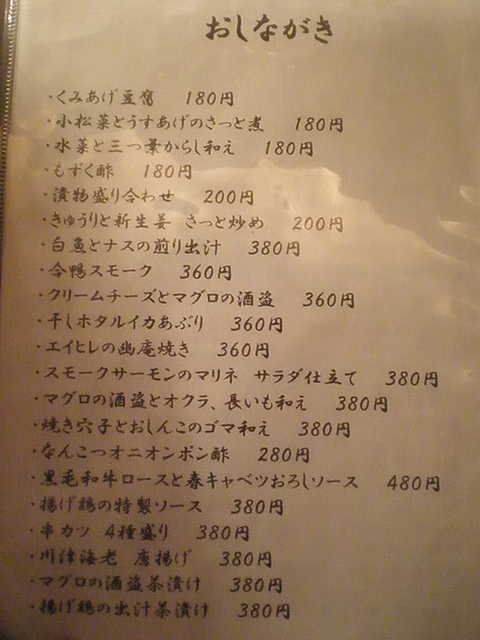 おしながき
・くみあげ豆腐 180円
・小松菜とうすあげのさっと煮 180円
・水菜と三つ葉からし和え 180円
・もずく酢 180円
・漬物盛り合わせ 200円
・きゅうりと新生姜 さっと炒め 200円
・白魚とナスの煎り出汁 380円
・合鴨スモーク 360円
・クリームチーズとマグロの酒盗 360円
・干しホタルイカあぶり 360円
・エイヒレの幽庵焼き 360円
・スモークサーモンのマリネ サラダ仕立て 380円
・マグロの酒盗とオクラ、長いも和え 380円
・焼き穴子とおしんこのゴマ和え 380円
・なんこつオニオンポン酢 280円
・黒毛和牛ロースと春キャベツおろしソース 480円
・揚げ鶏の特製ソース 380円
・串カツ 4種盛り 380円
・川津海老 唐揚げ 380円
・マグロの酒盗茶漬け 380円
・揚げ鶏の出汁茶漬け 380円